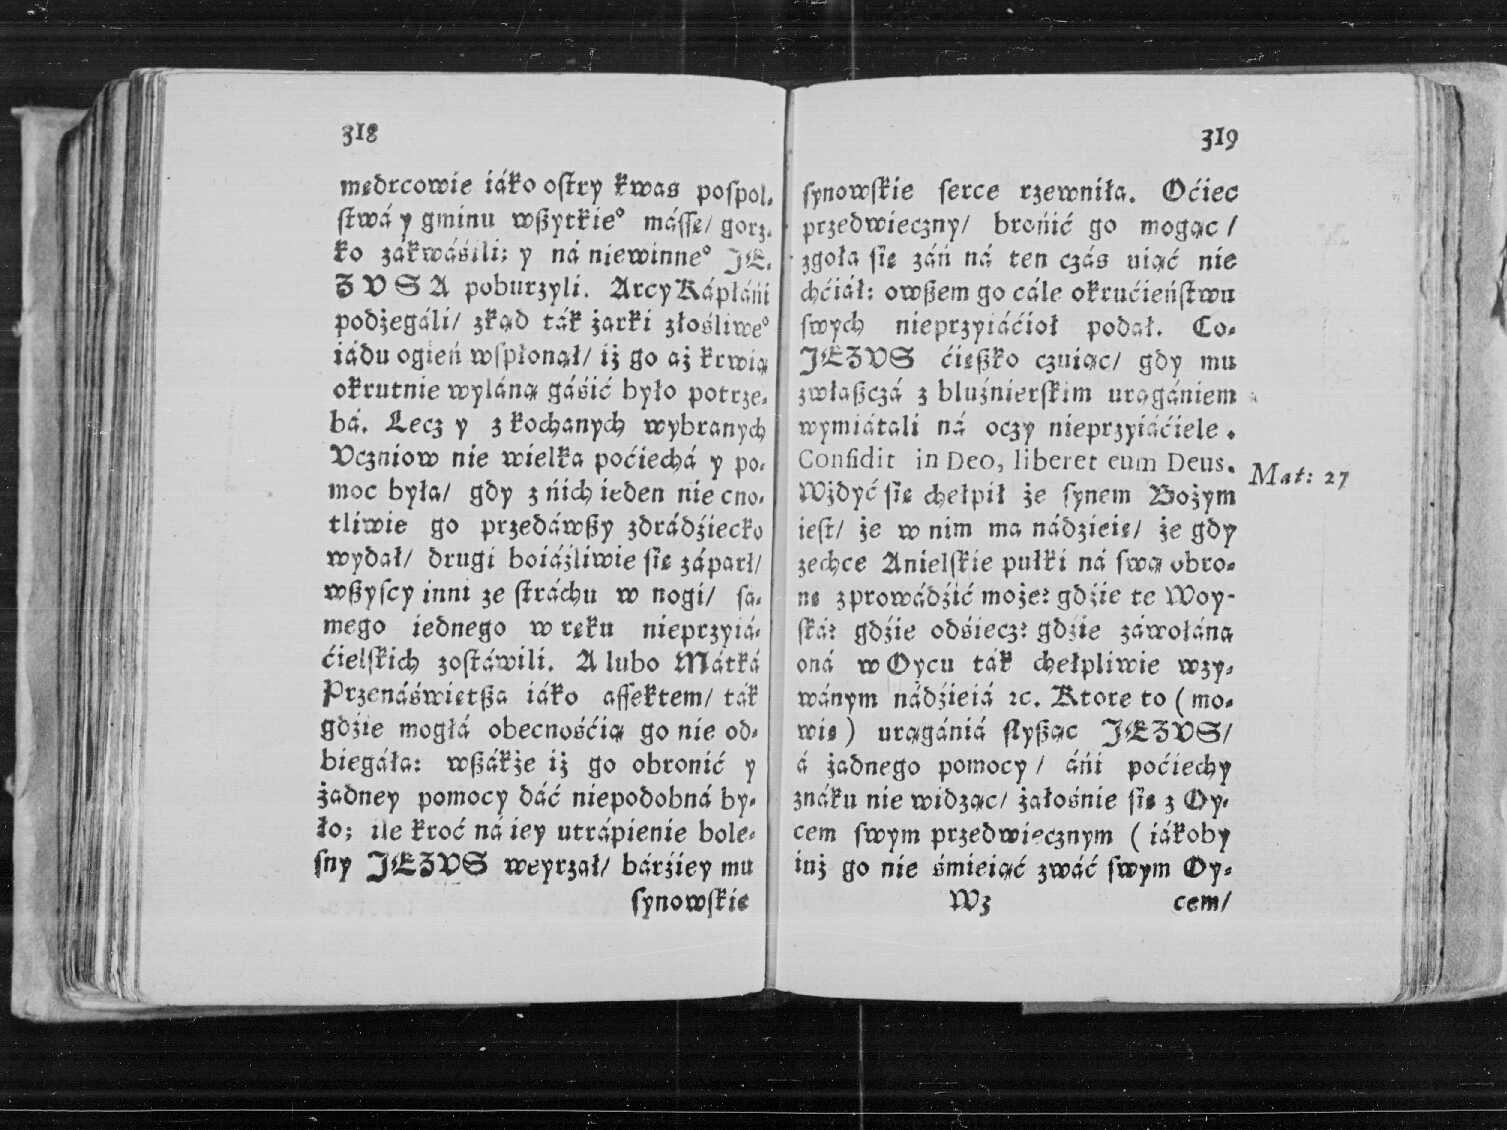 318
mędrcowie iáko ostry kwas pospol-
stwá y gminu wßytkie° másse/ gorz-
ko zákwáśili; y ná niewinne° JE-
ZVSA poburzyli. Arcy Kápłáńi
podżegáli/ zkąd ták żarki złośliwe°
iádu ogień wspłonął/ iż go aż krwią
okrutnie wyláną gáśić było potrze-
bá. Lecz y z kochanych wybranych
Vczniow nie wielka poćiechá y po-
moc była/ gdy z ńich ieden nie cno-
tliwie go przedáwßy zdrádźiecko
wydał/ drugi boiáźliwie się záparł/
wßyscy inni ze stráchu w nogi/ sa-
mego iednego w ręku nieprzyiá-
ćielskich zostáwili. A lubo Mátká
Przenáświętßa iáko affektem/ ták
gdźie mogłá obecnośćią go nie od-
biegáła: wßákże iż go obronić y
żadney pomocy dáć niepodobná by-
ło; ile kroć ná iey utrápienie bole-
sny JEZVS weyrzał/ bárźiey mu
synowskie
319
synowskie serce rzewniła. Oćiec
przedwieczny/ brońić go mogąc/
zgoła się záń ná ten czás uiąć nie
chćiáł: owßem go cále okrućieństwu
swych nieprzyiáćioł podał. Co-
JEZVS ćięßko czuiąc/ gdy mu
zwłaßczá z bluźnierskim urągániem
wymiátali ná oczy nieprzyiáćiele.
Confidit in Deo, liberet eum Deus.
Mat: 27
Wżdyć się chełpił że synem Bożym
iest/ że w nim ma nádzieię/ że gdy
zechce Anielskie pułki ná swą obro-
nę zprowádźić może: gdźie te Woy-
ská? gdźie odśiecz? gdźie záwołána
oná w Oycu ták chełpliwie wzy-
wánym nádźieiá ɛc. Ktore to (mo-
wię) urągániá słyßąc JEZVS/
á żadnego pomocy/ áńi poćiechy
znáku nie widząc/ żałośnie się z Oy-
cem swym przedwiecznym (iákoby
iuż go nie śmieiąć zwáć swym Oy-
Wz cem/